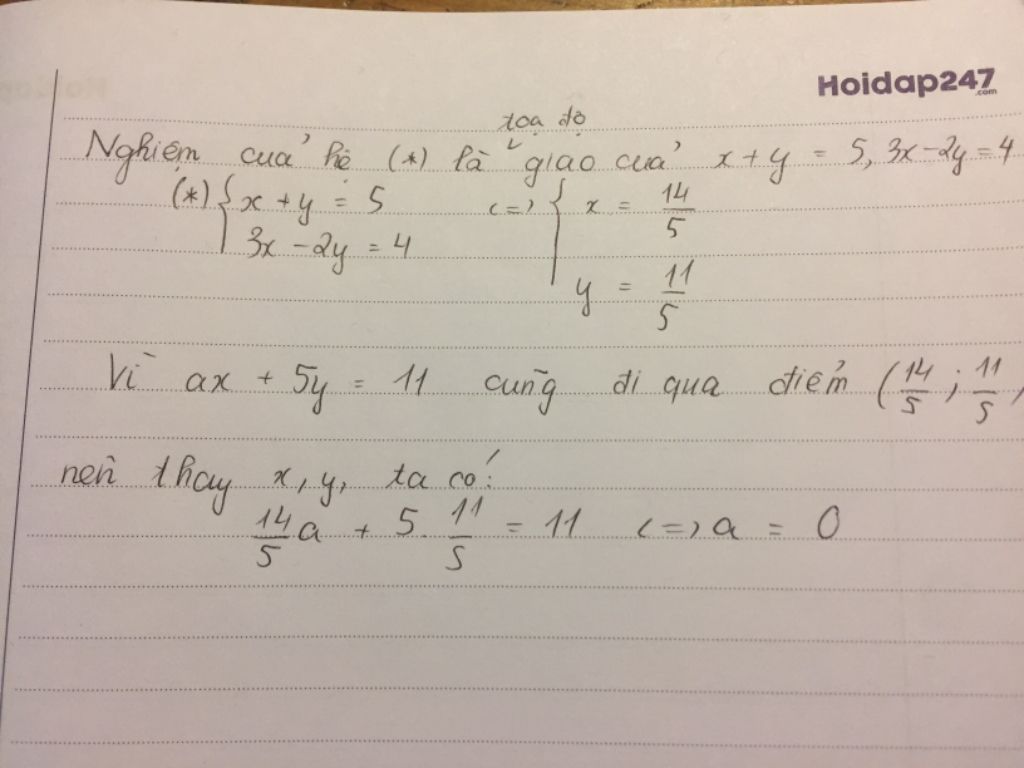 Hoidap247
.com
toạ độ
Nghiệm của hệ (*) là giao của x + y = 5, 3x - 2y = 4
(*) { x + y = 5 <=> { x = 14/5
3x - 2y = 4
y = 11/5
Vì ax + 5y = 11 cũng đi qua điểm (14/5 ; 11/5)
nên thay x, y, ta có:
14/5 a + 5. 11/5 = 11 <=> a = 0